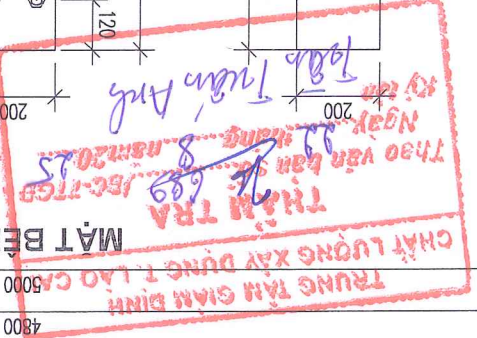 4800
5000
TRUNG TÂM GIÁM ĐỊNH
CHẤT LƯỢNG XÂY DỰNG T. LÀO CAI
MẶT BẰ
THẨM TRA
Theo văn bản số 699 /BC-TTGĐ
Ngày 22 tháng 8 năm 2025
Ký tên
Trần Tuấn Anh
200
200
120